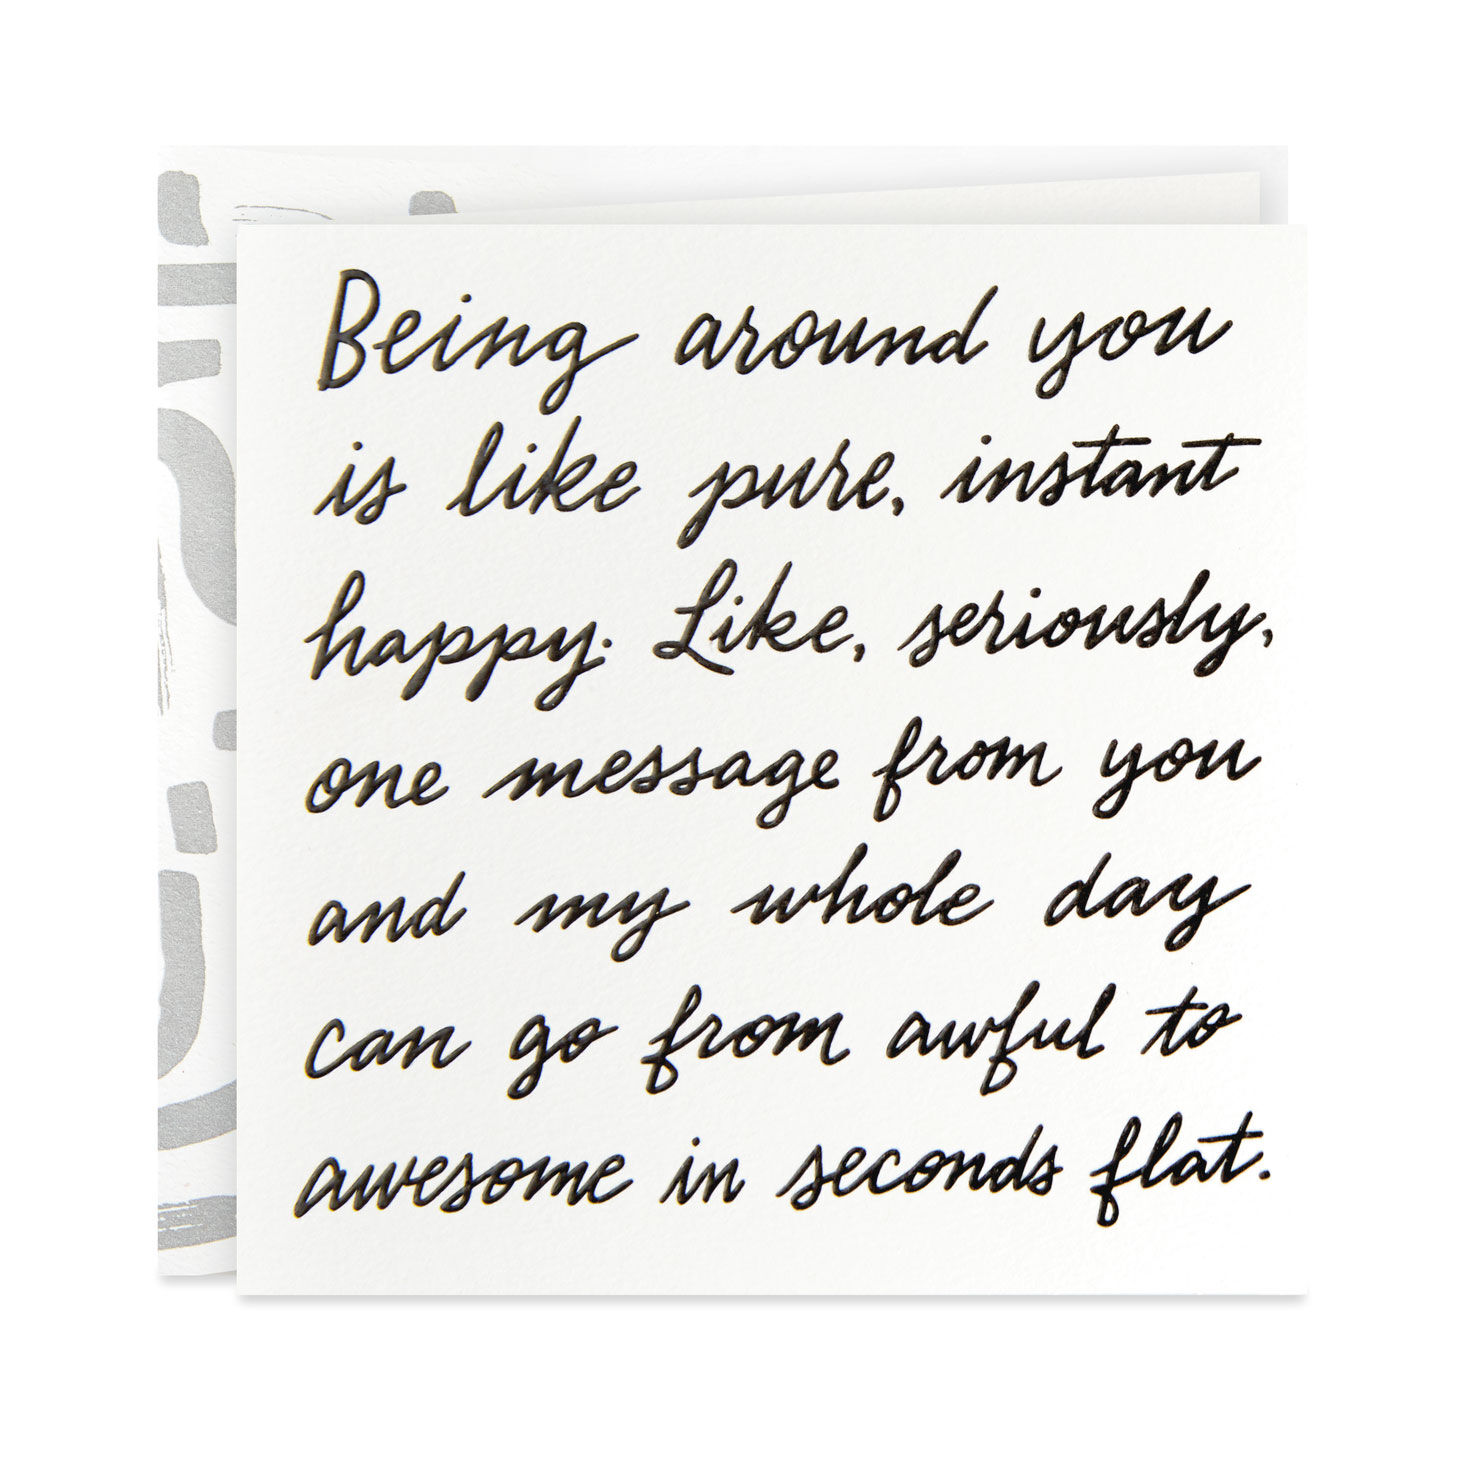 Being around you
is like pure, instant
happy. Like, seriously,
one message from you
and my whole day
can go from awful to
awesome in seconds flat.